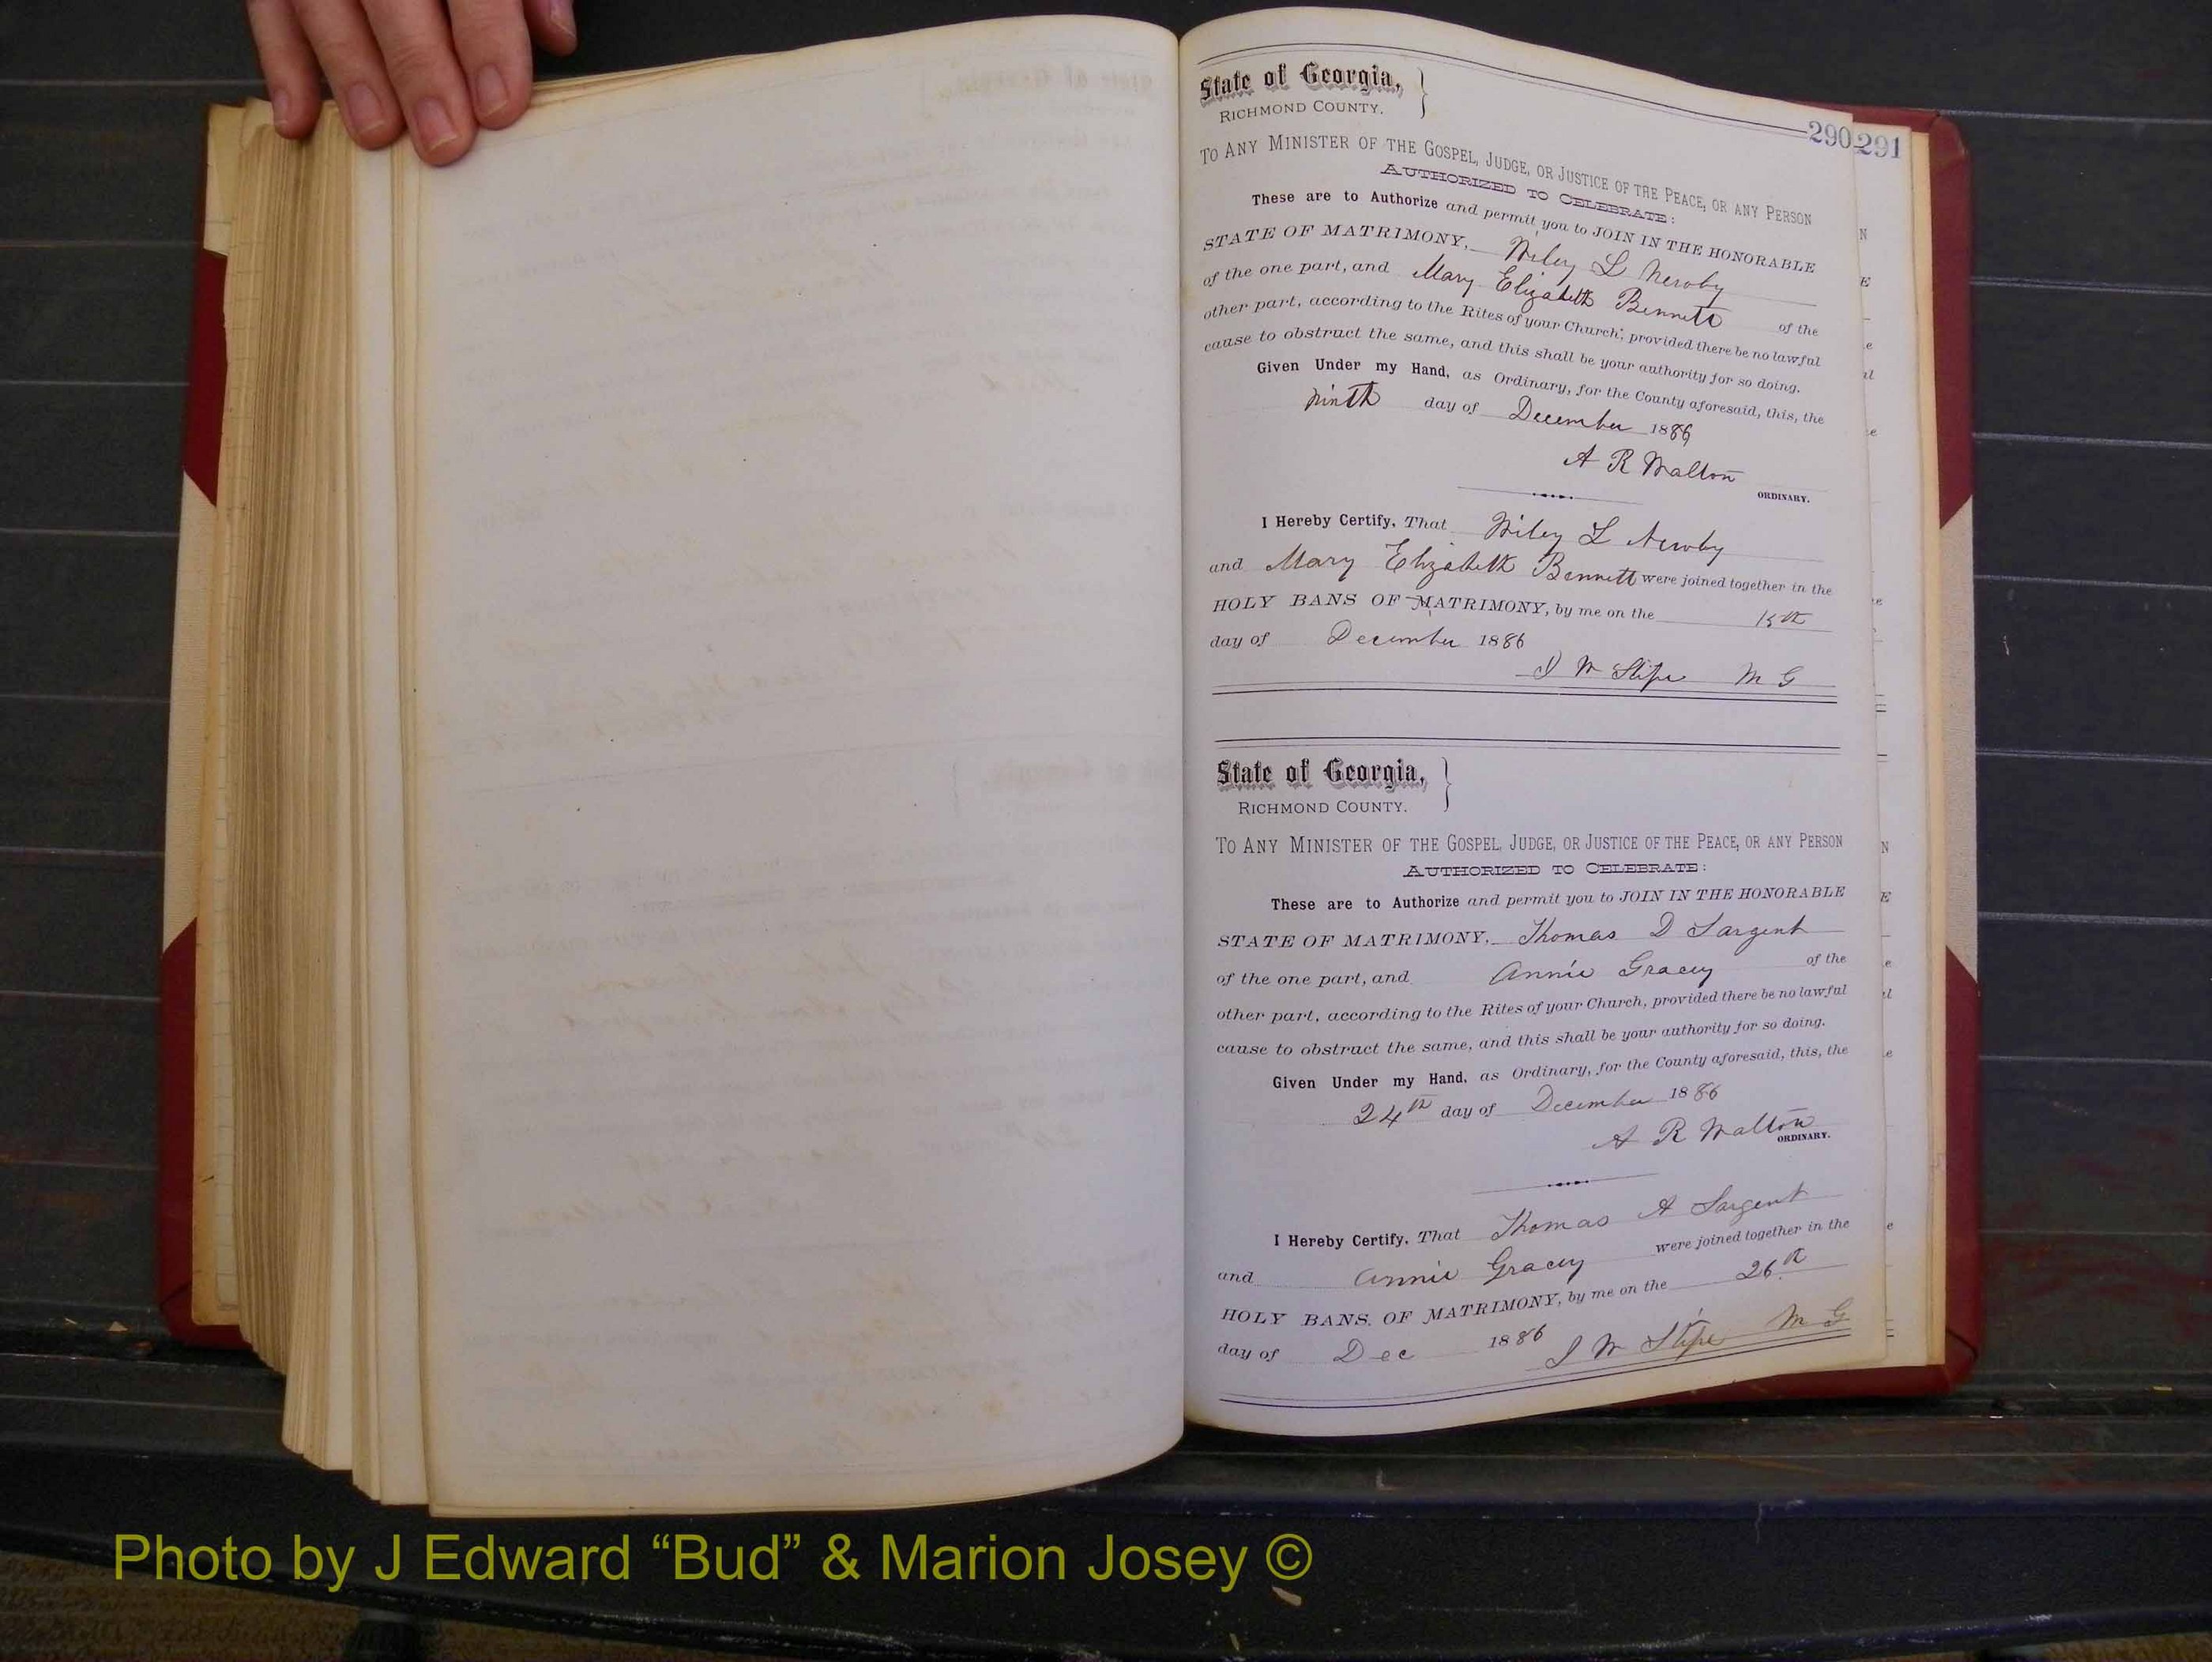 State of Georgia,
RICHMOND COUNTY.
290 291
TO ANY MINISTER OF THE GOSPEL, JUDGE, OR JUSTICE OF THE PEACE, OR ANY PERSON
AUTHORIZED TO CELEBRATE:
These are to Authorize and permit you to JOIN IN THE HONORABLE
STATE OF MATRIMONY, Wiley L Newby
of the one part, and Mary Elizabeth Bennett of the
other part, according to the Rites of your Church; provided there be no lawful
cause to obstruct the same, and this shall be your authority for so doing.
Given Under my Hand, as Ordinary, for the County aforesaid, this, the
ninth day of December 1886
A R Walton
ORDINARY.
I Hereby Certify, That Wiley L Newby
and Mary Elizabeth Bennett were joined together in the
HOLY BANS OF MATRIMONY, by me on the 15th
day of December 1886
J W Stipe M G
State of Georgia,
RICHMOND COUNTY.
TO ANY MINISTER OF THE GOSPEL, JUDGE, OR JUSTICE OF THE PEACE, OR ANY PERSON
AUTHORIZED TO CELEBRATE:
These are to Authorize and permit you to JOIN IN THE HONORABLE
STATE OF MATRIMONY, Thomas D Sargent
of the one part, and Annie Gracey of the
other part, according to the Rites of your Church, provided there be no lawful
cause to obstruct the same, and this shall be your authority for so doing.
Given Under my Hand, as Ordinary, for the County aforesaid, this, the
24th day of December 1886
A R Walton
ORDINARY.
I Hereby Certify, That Thomas A Sargent
and Annie Gracey were joined together in the
HOLY BANS OF MATRIMONY, by me on the 26th
day of Dec 1886 J W Stipe M G
Photo by J Edward “Bud” & Marion Josey ©